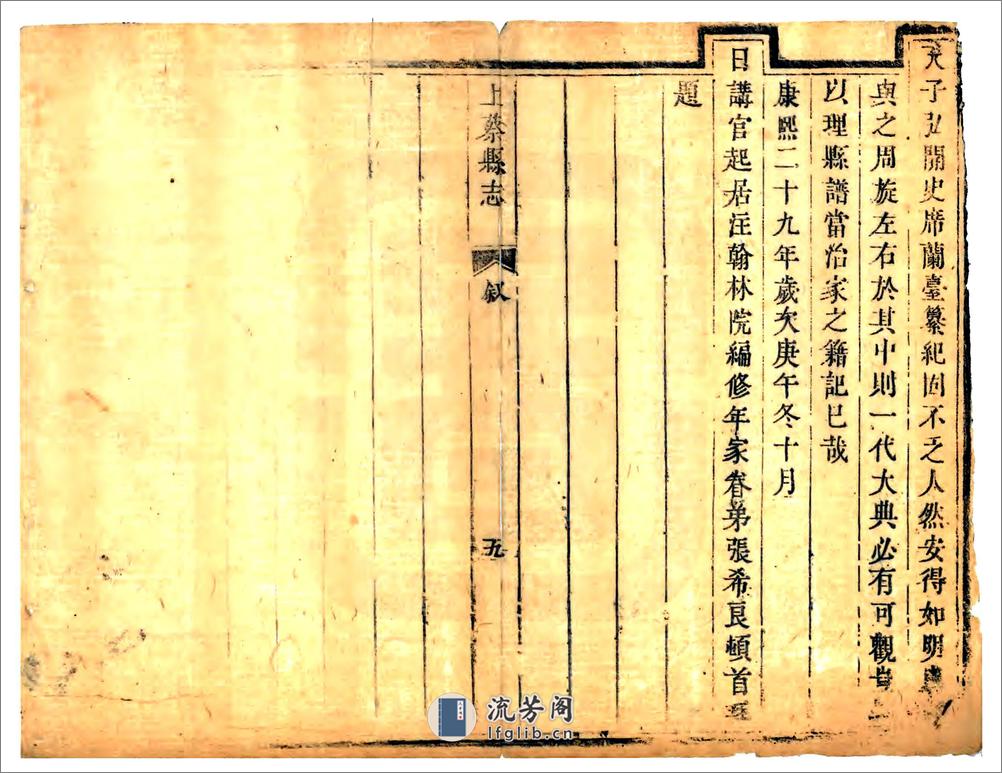 天子弘開史席蘭臺纂紀固不乏人然安得如明
與之周旋左右於其中則一代大典必有可觀
以理縣譜當治家之籍記已哉
康熙二十九年歲次庚午冬十月
日講官起居注翰林院編修年家眷弟張希良頓首
題
上蔡縣志
叙
五
流芳阁
lfglib.cn